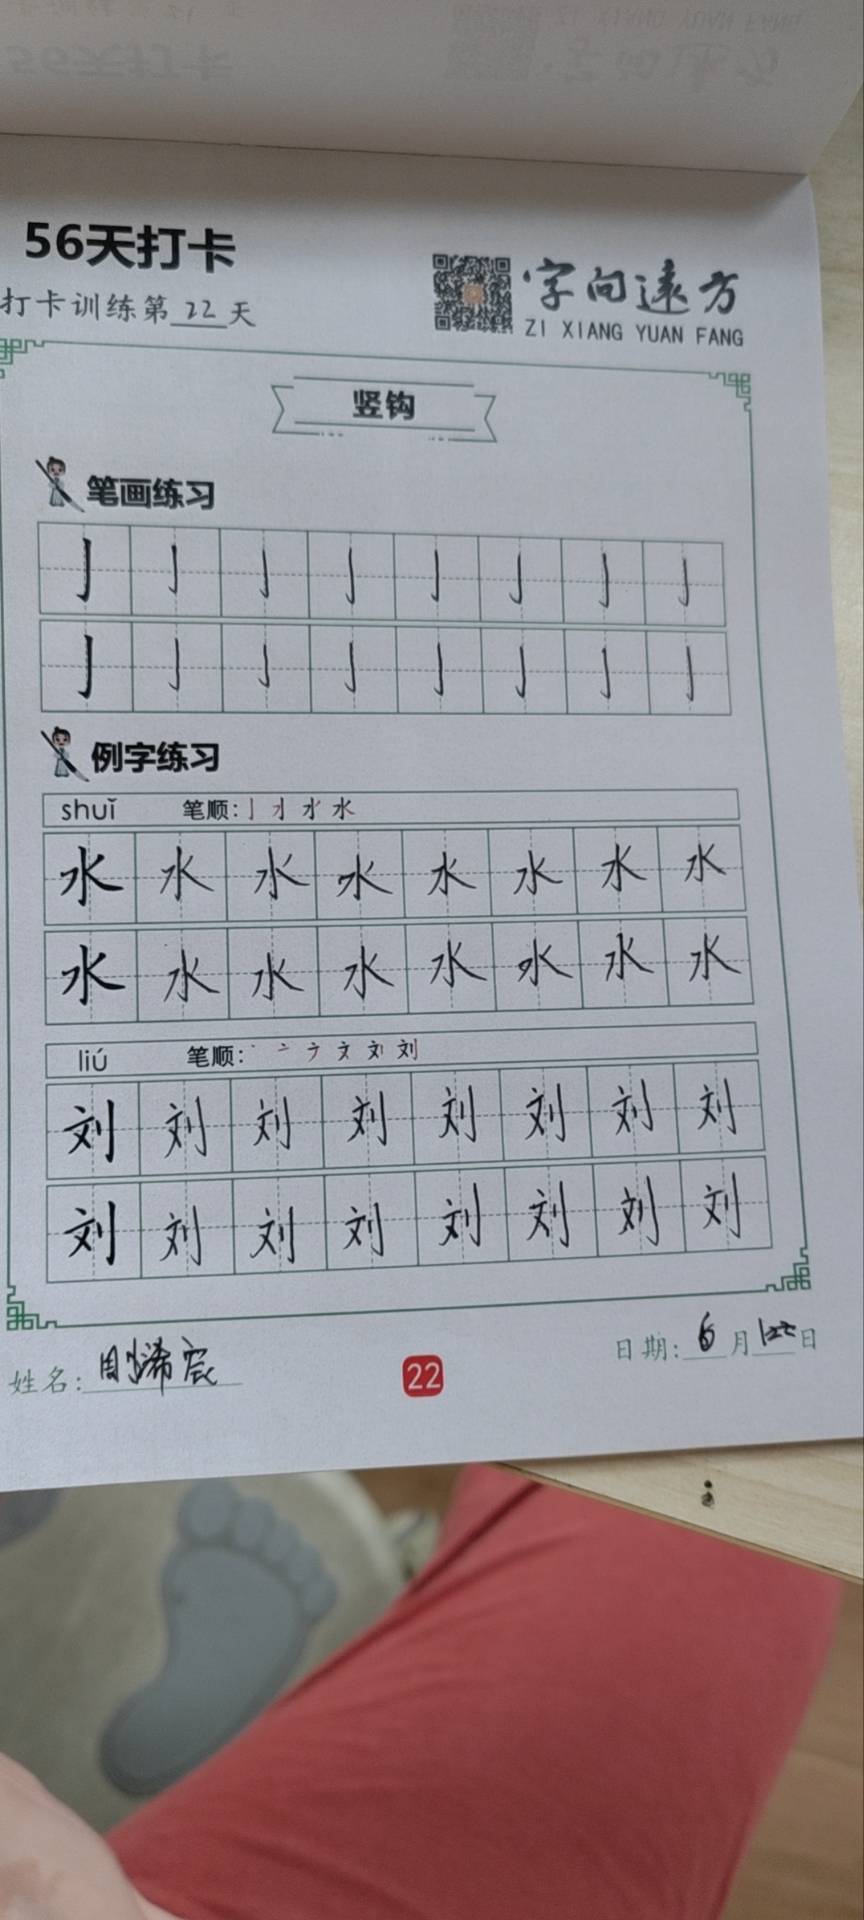 56天打卡
打卡训练第22天
字向远方
ZI XIANG YUAN FANG
竖钩
笔画练习
亅亅亅亅亅亅亅亅
亅亅亅亅亅亅亅亅
例字练习
shuǐ 笔顺:
水水水水水水水水
水水水水水水水水
liú 笔顺:
刘刘刘刘刘刘刘刘
刘刘刘刘刘刘刘刘
姓名:
22
日期:6月 日